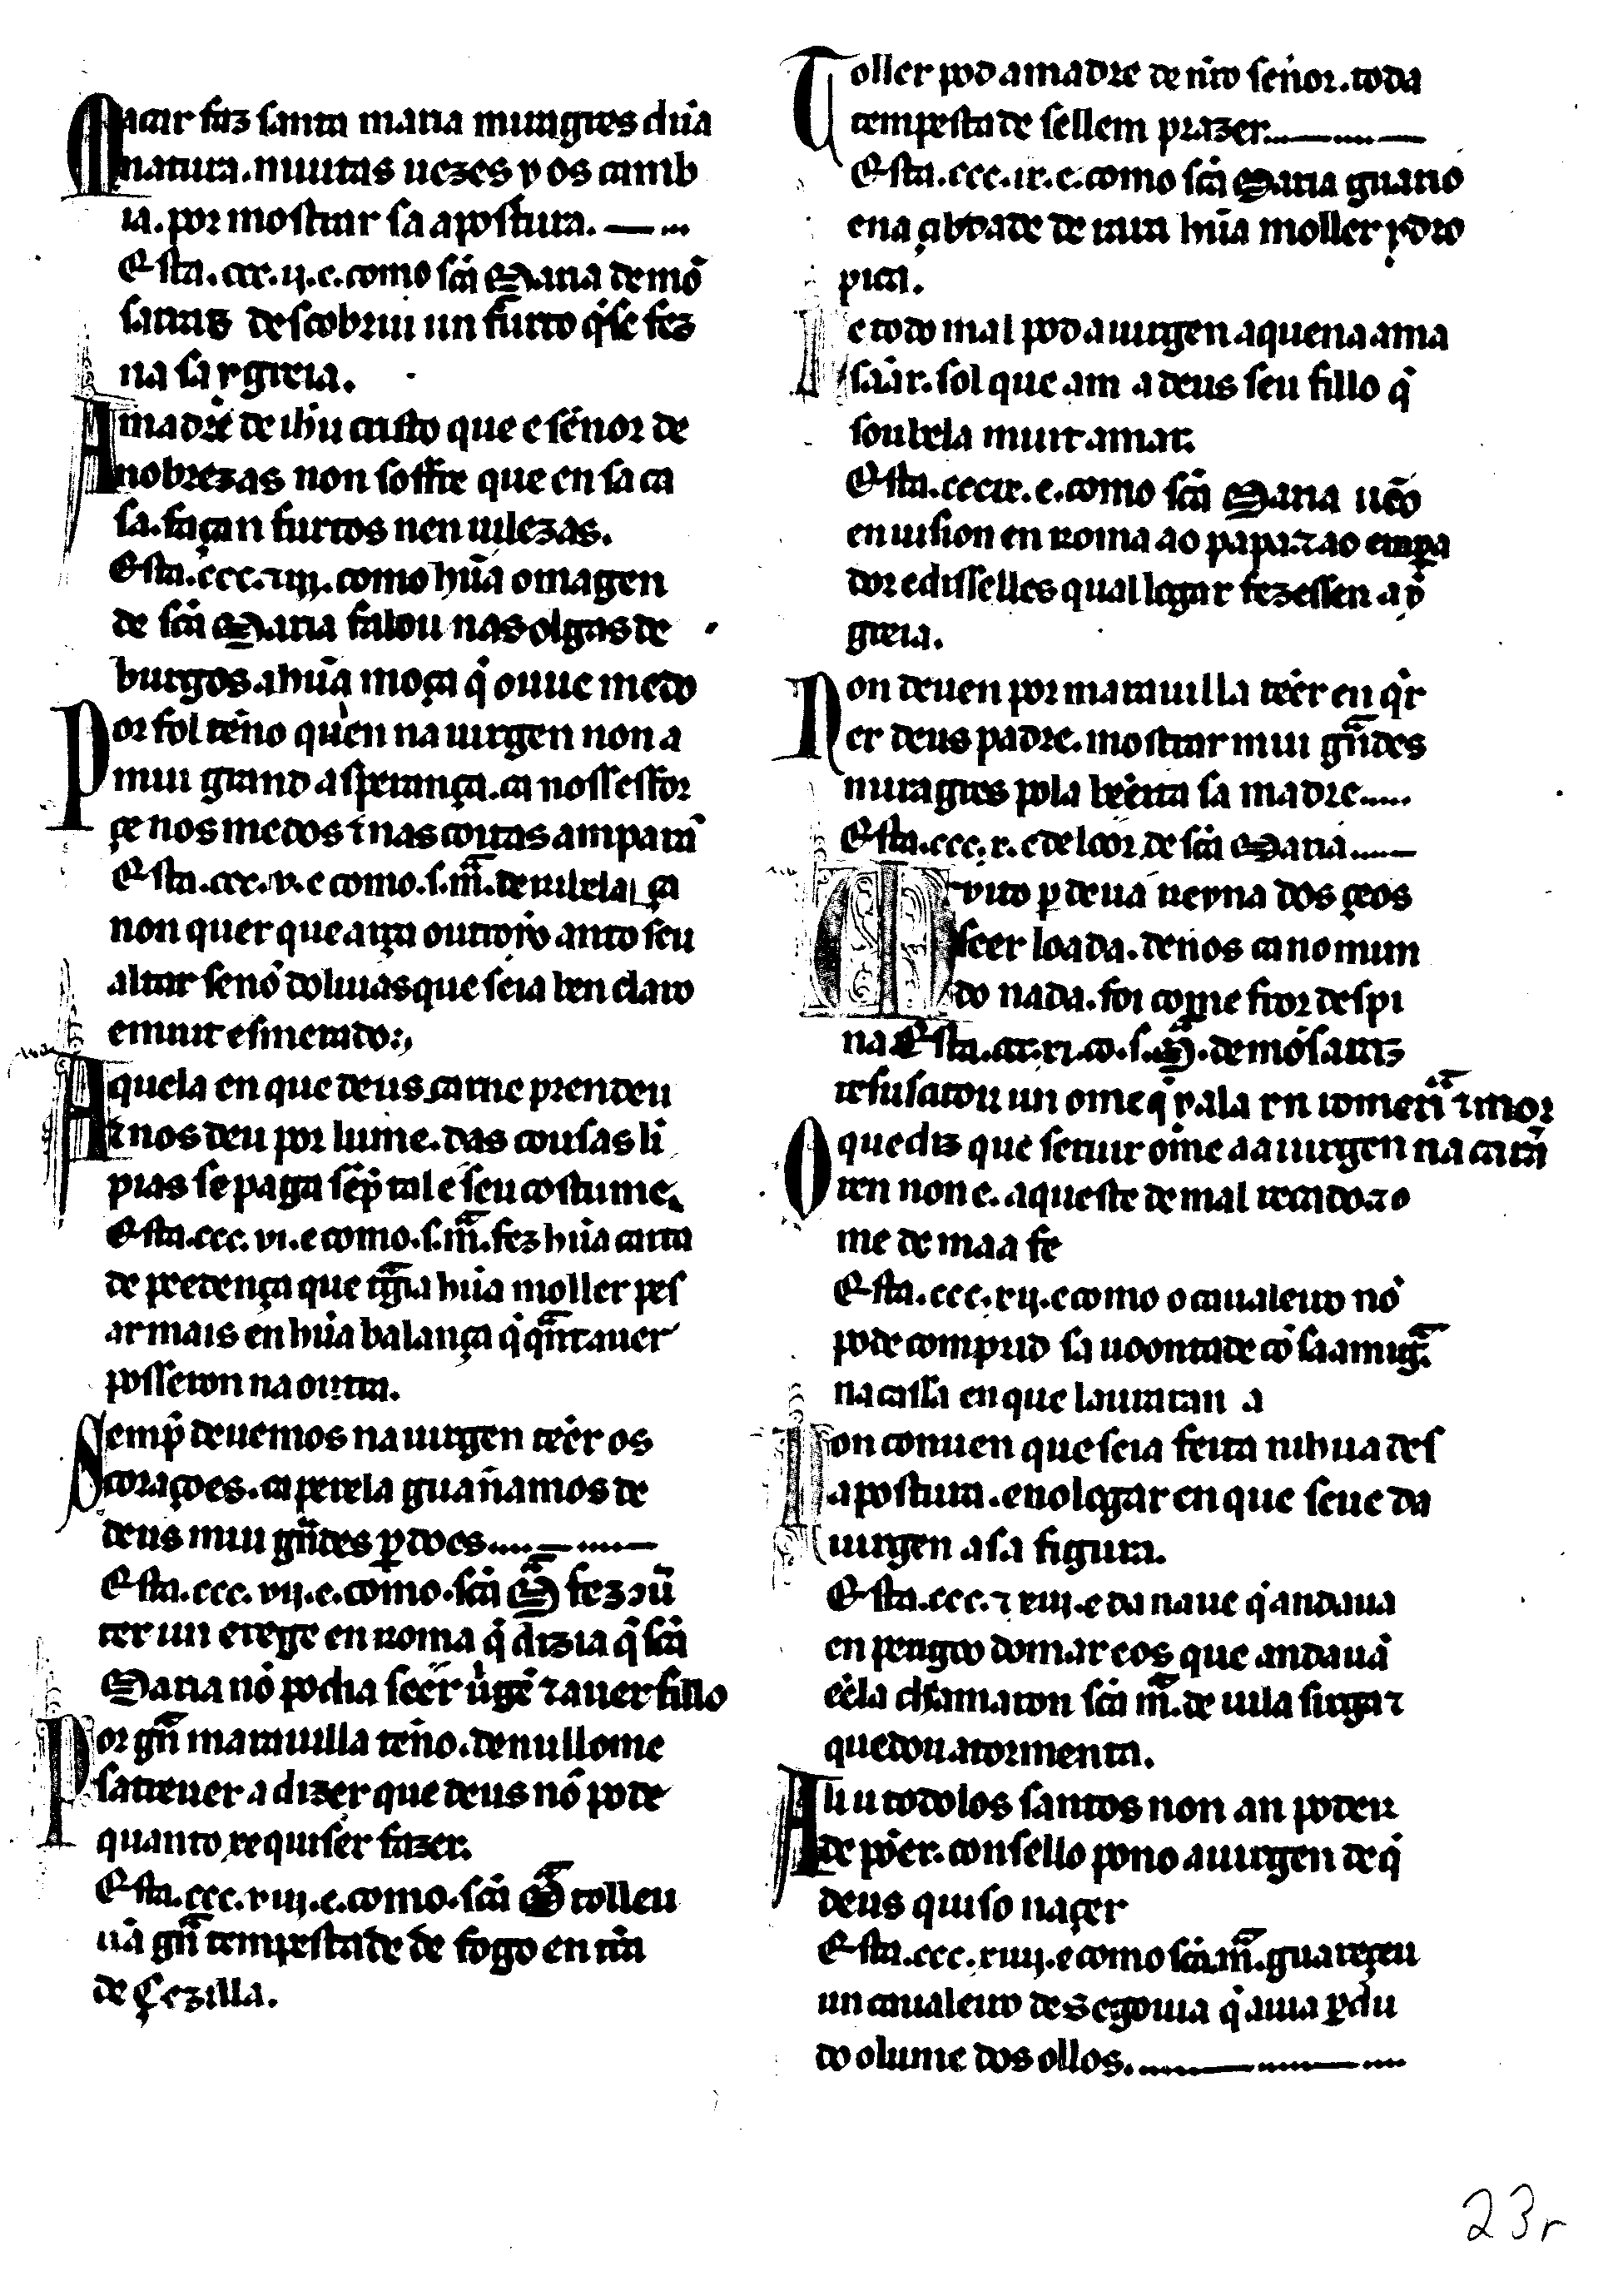 Macar faz santa maria miragres dũa
natura. muitas uezes y os camb
ia. por mostrar sa apostura.
Esta .ccc.ij. e. como scã Maria de mõ
sarraz descobriu un furto q̇ se fez
na sa ygreia.
A madre de ihũ cristo que e sẽnor de
nobrezas non soffre que en sa ca
sa. façan furtos nen uilezas.
Esta .ccc. ⁊ iij. como hũa omagen
de scã Maria falou nas olgas de
burgos. a hũa moça q̇ ouue medo
Por fol tẽno quen na uirgen non a
mui grand asperança. ca noss esfor
çe nos medos ⁊ nas coitas amparã
Esta .ccc.v. e como .s. mã. de uilela
non quer que arça outr oyo anto seu
altar senõ doliuas que seia ben claro
e muit esmerado:
Aquela en que deus carne prendeu
⁊ nos deu por lume. das cousas li
pias se paga sẽp̃ tal e seu costume
Esta .ccc.vi. e como .s. mã. fez hũa carta
de pedença que tragia hũa moller pes
ar mais en hũa balança q̇ q̃nt auer
posseron na outra.
Semp̃ deuemos na uirgen tẽer os
corações. ca per ela guañamos de
deus mui gñdes p̱dões
Esta .ccc.vij. e. como .scã Mã fez jũ
ter un erege en roma q̇ dizia q̇ scã
Maria nõ podia seer uirgẽ ⁊ auer fillo
Por gñ marauilla teño. de null ome
s atreuer a dizer que deus nõ pode
quanto xe quiser fazer.
Esta .ccc.viij. e. como .scã Mã tolleu
ũa gñ tempestade de fogo en tra
de Çezilla.
Toller pod a madre de nr̃o señor. toda
tempestade sell em prazer.
Esta .ccc.ix. e. como scã Maria guario
ena çibdade de rara hũa moller ydro
pica.
De todo mal pod a uirgen a quen a ama
sãar. sol que am a deus seu fillo q̇
soub ela muit amar.
Esta .cccix. e. como scã Maria uẽo
en uision en roma ao papa. ⁊ ao emp̱a
dor e disselles qual logar fezessen a y
greia.
Non deuen por marauilla tẽer en q̇r
er deus padre. mostrar mui gñdes
miragres pola bẽeita sa madre
Esta .ccc.x. e de loor de scã Maria
Muito p̱ deua reyna dos çeos
seer loada. de nos ca no mun
do nada. foi come fror despi
na Esta .ccc.xi. co .s. Mã. de mõsarraz
resuscitou un ome q̇ y ala en romeriã ⁊ mor
O que diz que seruir ome aa uirgen na carã
ren non e. aqueste de mal recado. ⁊ o
me de maa fe
Esta .ccc.xij. e como o caualeiro nõ
pode comprid sa uoontade cõ sa amigã.
na cassa en que lauraran a
Non conuen que seia feita nihũa des
apostura. eno logar en que seue da
uirgen a sa figura.
Esta .ccc. ⁊ xiij. e da naue q̇ andaua
en perigoo do mar e os que andauã
ẽela chamaron scã mã. de uila sirga ⁊
quedou a tormenta.
Ali u todolos santos non an poder
de põer. consello pono a uirgen de q̇
deus quiso naçer
Esta .ccc.xiiij. e como scã mã. guareçeu
un caualeiro de segouia q̇ auia p̱du
do o lume dos ollos.
23r